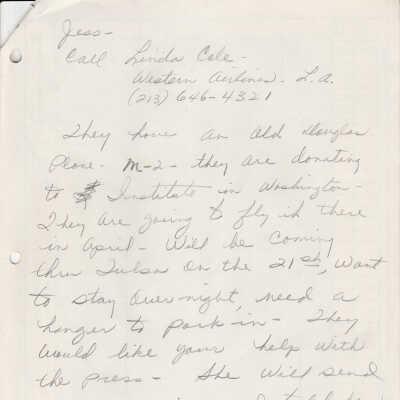 Jess-
Call Linda Cole-
Western Airlines. L.A.
(213) 646-4321
They have an old Douglas
Plane- M-2- they are donating
to Institute in Washington-
They are going to fly it there
in April- Will be coming
thru Tulsa on the 21st, Want
to stay over-night, need a
hanger to park-in- They
would like your help with
the press- She will send